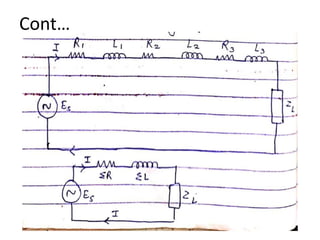 Cont...
I R₁ L₁ R₂ L₂ R₃ L₃
Es
ZL
I ΣR ΣL
Es
ZL
I